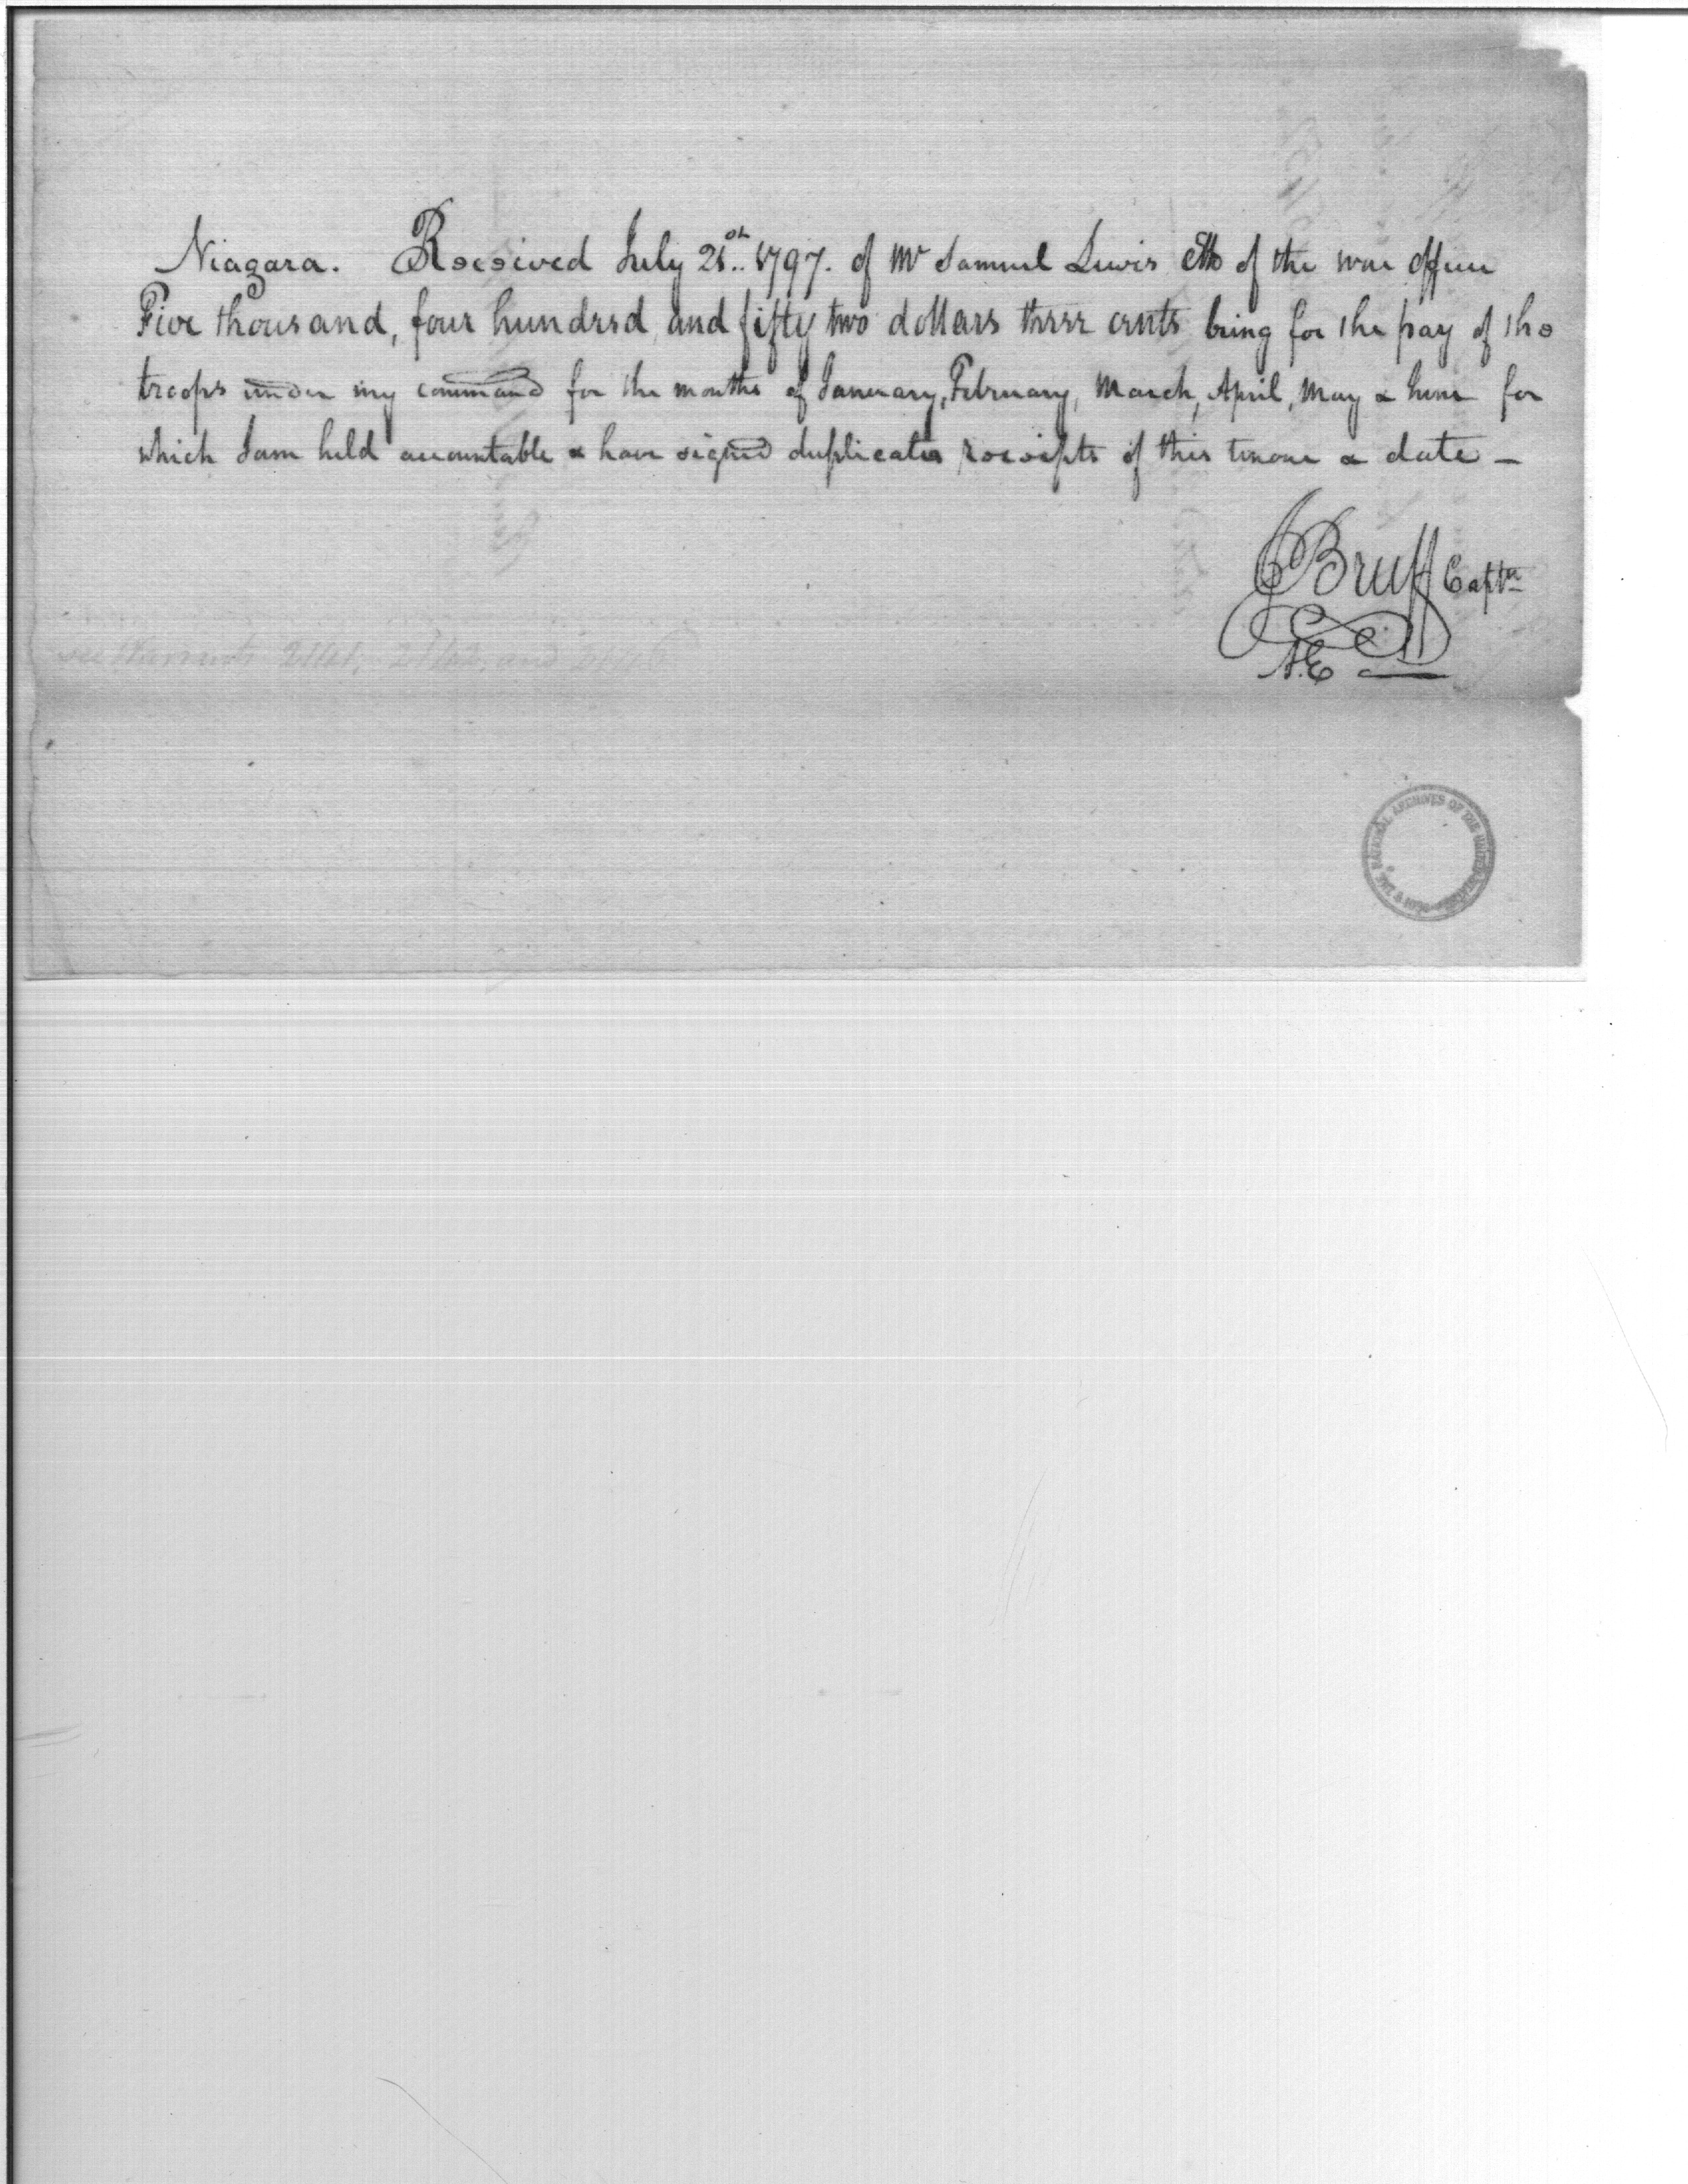 Niagara. Received July 21st.. 1797. of Mr Samuel Lewis of the war office
Five thousand, four hundred, and fifty two dollars three cents being for the pay of the
troops under my command for the months of January, February, March, April, May & June for
which I am held accountable & have signed duplicates receipts of this tenour & date —
J Bruff Captn
A.E
see Warrants and
THE NATIONAL ARCHIVES OF THE UNITED STATES